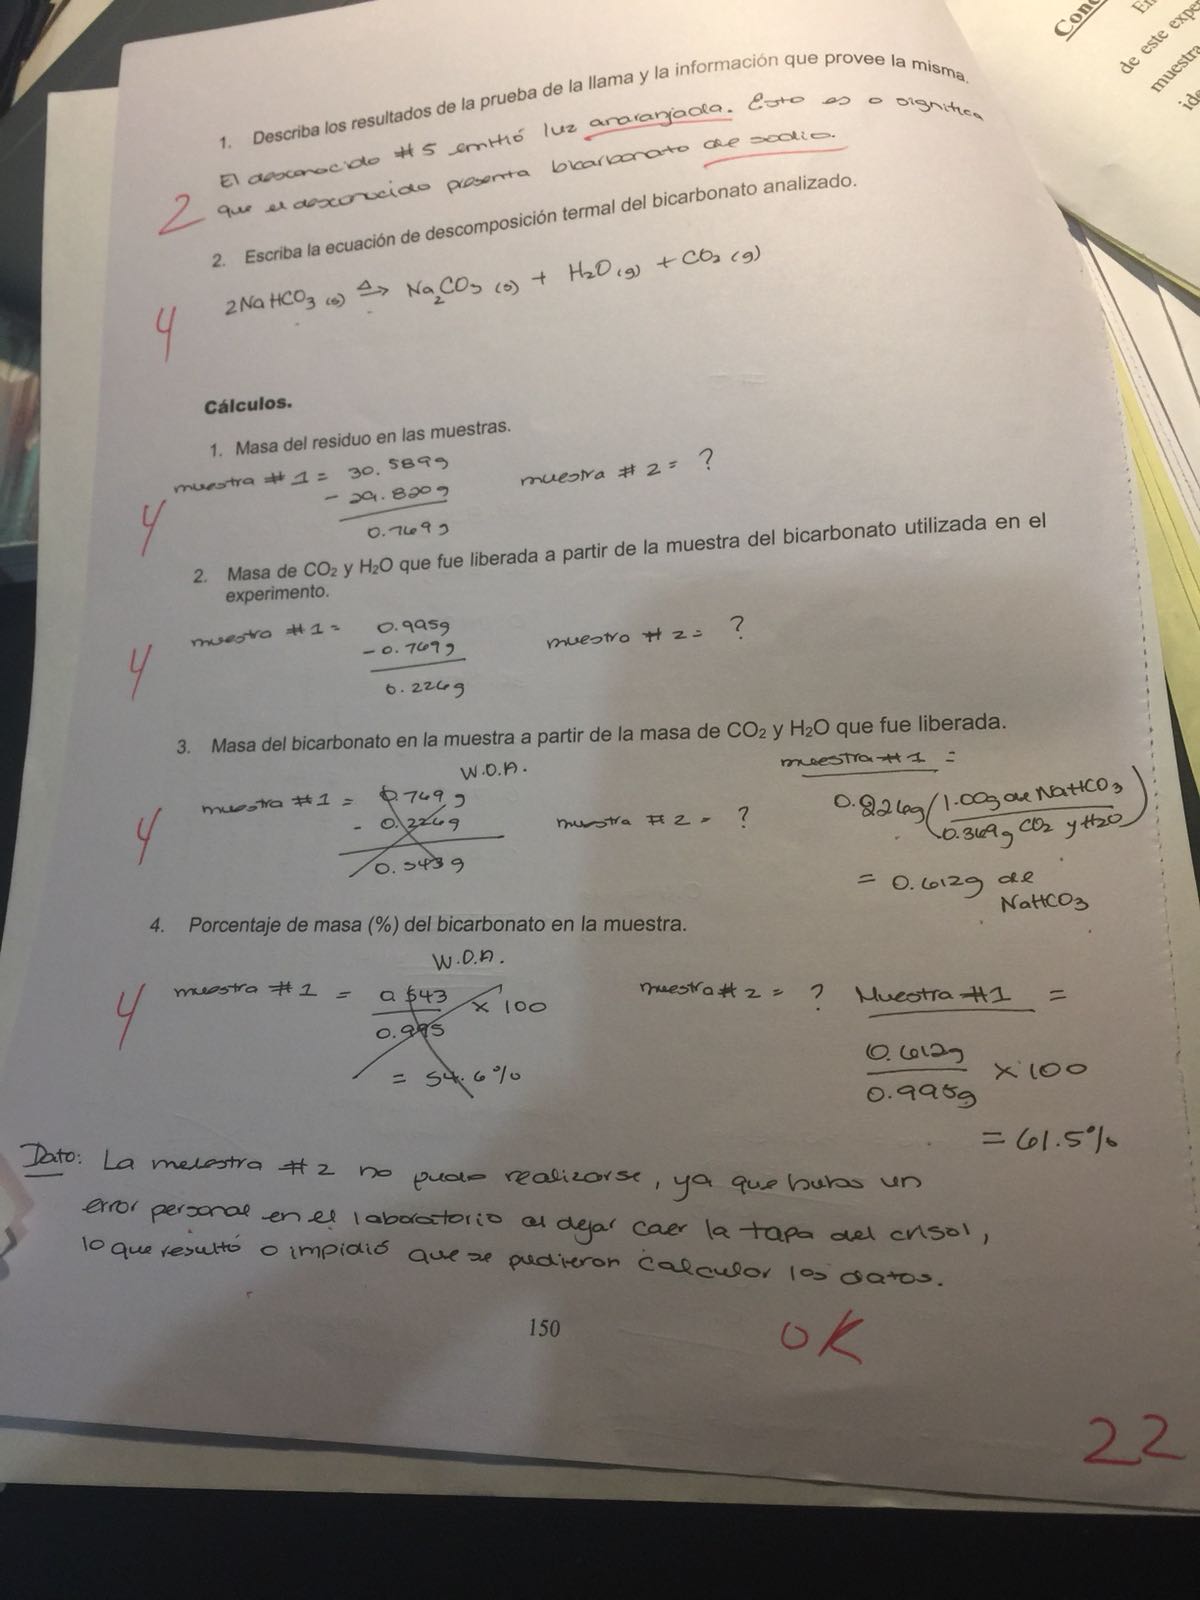 Conc
En
de este expe
muestra
ide
1. Describa los resultados de la prueba de la llama y la información que provee la misma.
El desconocido #5 emitió luz anaranjada. Esto es o significa
que el desconocido presenta bicarbonato de sodio.
2
2. Escriba la ecuación de descomposición termal del bicarbonato analizado.
2NaHCO3 (s) Δ→ Na2CO3 (s) + H2O (g) + CO2 (g)
4
Cálculos.
1. Masa del residuo en las muestras.
muestra #1 = 30.589g muestra #2 = ?
- 29.820g
0.769g
4
2. Masa de CO2 y H2O que fue liberada a partir de la muestra del bicarbonato utilizada en el
experimento.
muestra #1 = 0.995g muestra #2 = ?
- 0.769g
0.226g
4
3. Masa del bicarbonato en la muestra a partir de la masa de CO2 y H2O que fue liberada.
W.O.A. muestra #1 =
muestra #1 = 0.769g muestra #2 = ? 0.226g (1.00g de NaHCO3 / 0.369g CO2 y H2O)
- 0.226g
0.543g = 0.612g de
NaHCO3
4
4. Porcentaje de masa (%) del bicarbonato en la muestra.
W.O.A.
muestra #1 = 0.543 / 0.995 x 100 muestra #2 = ? Muestra #1 =
= 54.6% 0.612g / 0.995g x 100
= 61.5%
4
Dato: La muestra #2 no pudo realizarse, ya que hubo un
error personal en el laboratorio al dejar caer la tapa del crisol,
lo que resultó o impidió que se pudieron calcular los datos.
150
OK
22